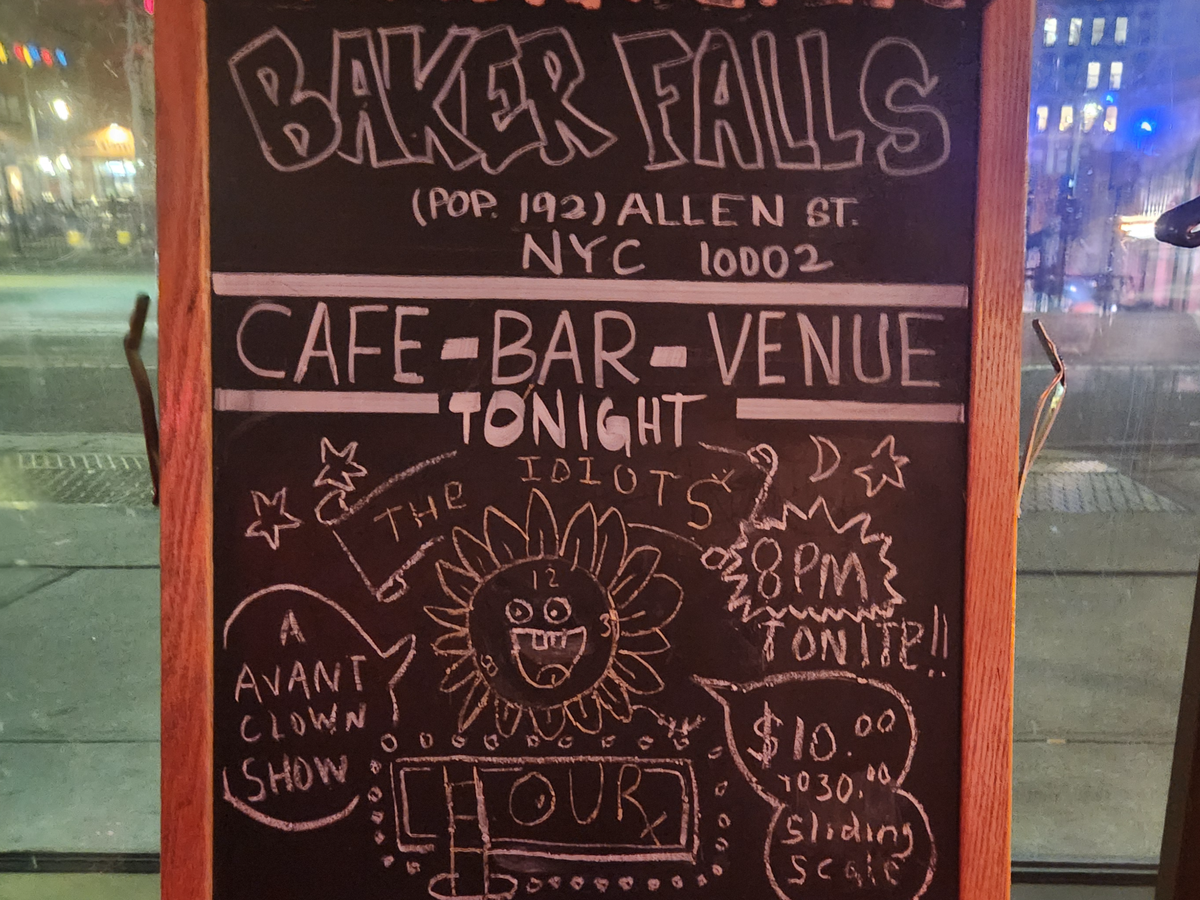 BAKER FALLS
(POP. 192) ALLEN ST.
NYC 10002
CAFE-BAR-VENUE
TONIGHT
THE IDIOTS'
8PM
TONITE!!
12
3
A
AVANT
CLOWN
SHOW
HOUR
$10.00
TO30.00
Sliding
Scale